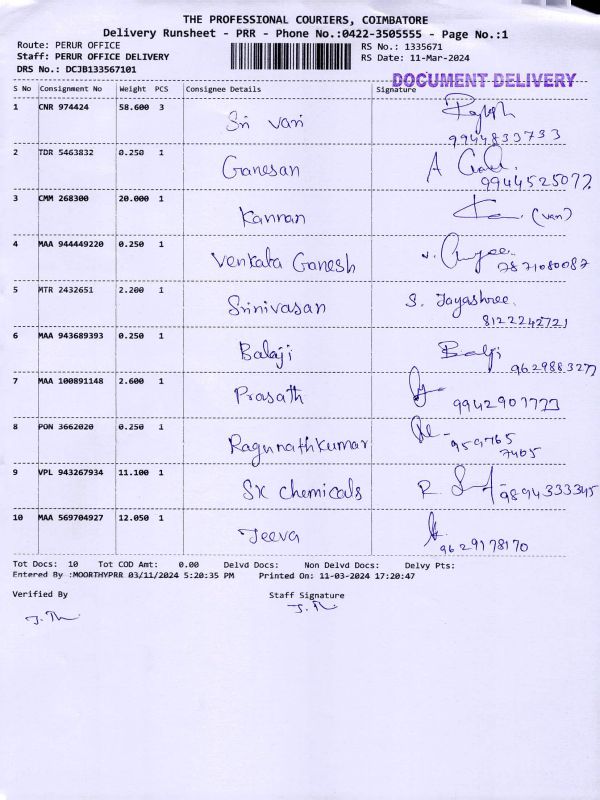 THE PROFESSIONAL COURIERS, COIMBATORE
Delivery Runsheet - PRR - Phone No.:0422-3505555 - Page No.:1
Route: PERUR OFFICE RS No.: 1335671
Staff: PERUR OFFICE DELIVERY RS Date: 11-Mar-2024
DRS No.: DCJB133567101
DOCUMENT DELIVERY
S No Consignment No Weight PCS Consignee Details Signature
1 CNR 974424 58.600 3 Sri vari 9944833733
2 TDR 5463832 0.250 1 Ganesan 9944525077
3 CMM 268300 20.000 1 Kannan (van)
4 MAA 944449220 0.250 1 Venkata Ganesh 7871080087
5 MTR 2432651 2.200 1 Srinivasan S. Jayashree.
8122242721
6 MAA 943689393 0.250 1 Balaji Balaji
9629883277
7 MAA 100891148 2.600 1 Prasath 9942901773
8 PON 3662020 0.250 1 Ragunathkumar 959765
7405
9 VPL 943267934 11.100 1 SK Chemicals 9894333345
10 MAA 569704927 12.050 1 Jeeva
9629178170
Tot Docs: 10 Tot COD Amt: 0.00 Delvd Docs: Non Delvd Docs: Delvy Pts:
Entered By :MOORTHYPRR 03/11/2024 5:20:35 PM Printed On: 11-03-2024 17:20:47
Verified By Staff Signature